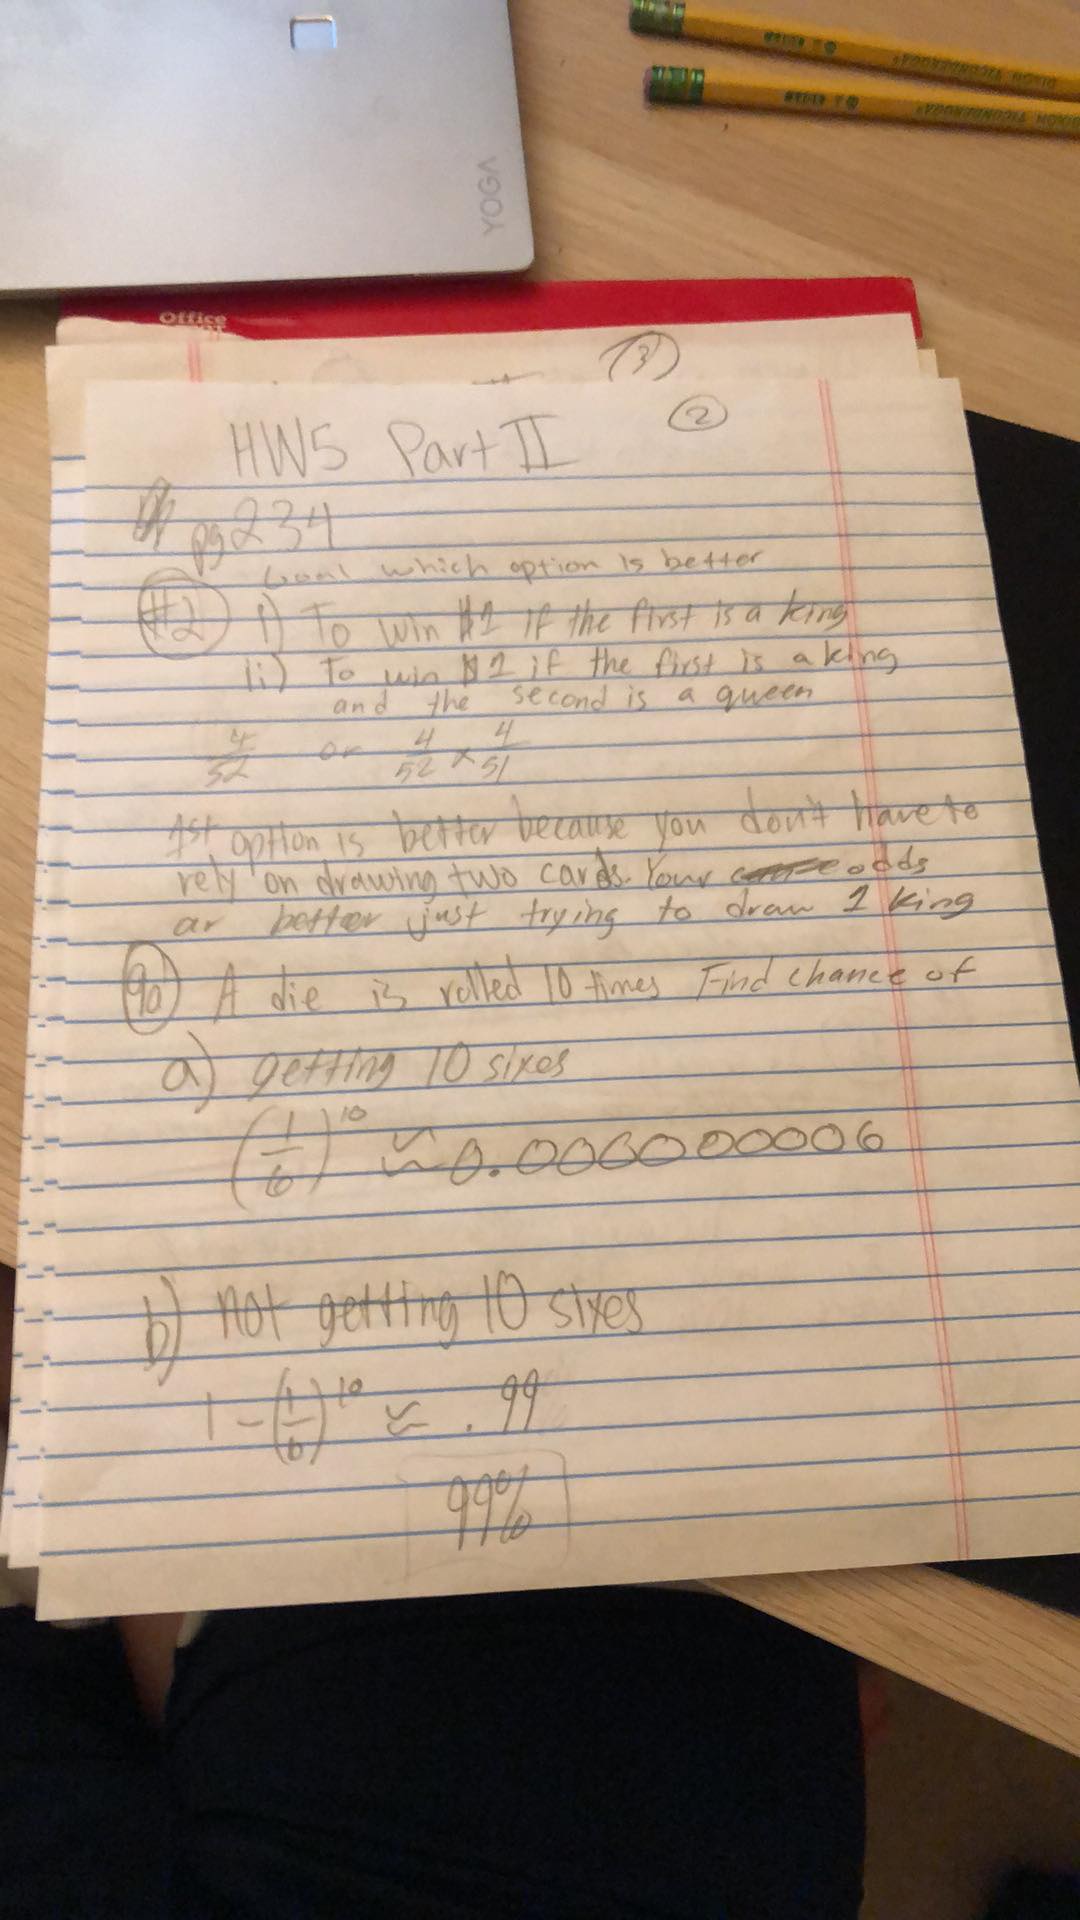 YOGA
DIXON TICONDEROGA
DIXON TICONDEROGA
Office
(3)
HW5 Part II
(2)
pg 234
Goal which option is better
#2 i) To win $1 if the first is a king
ii) To win $1 if the first is a king
and the second is a queen
4/52 or 4/52 × 4/51
1st option is better because you don't have to
rely on drawing two cards. Your odds
ar better just trying to draw 1 king
9a A die is rolled 10 times Find chance of
a) getting 10 sixes
(1/6)^10 ≈ 0.000000006
b) not getting 10 sixes
1-(1/6)^10 ≈ .99
99%